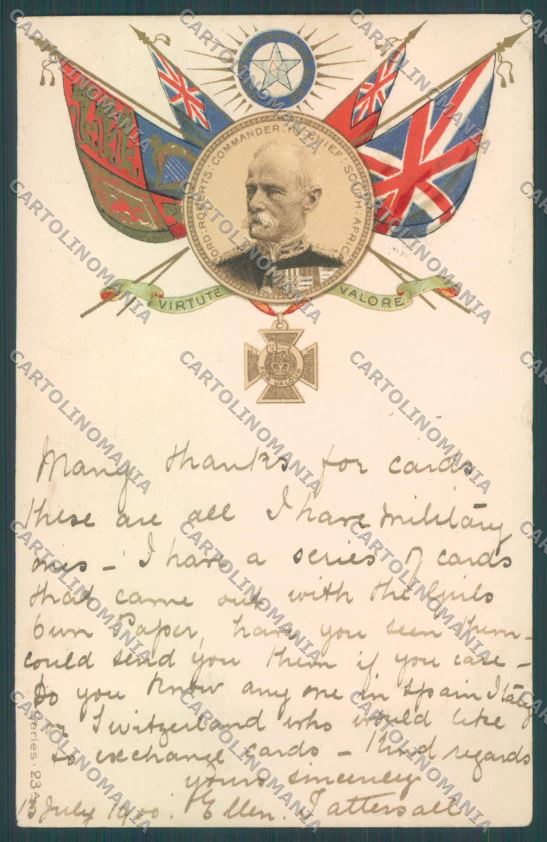 LORD·ROBERTS·COMMANDER·IN·CHIEF·SOUTH·AFRICA
VIRTUTE VALORE
VALOUR
Many thanks for cards
these are all I have military
ones – I have a series of cards
that came out with the Girls
Own Paper, have you seen them –
could send you them if you care –
Do you know any one in Spain Italy
or Switzerland who would like
to exchange cards – Kind regards
yours sincerely
13 July 1900. Ellen. Tattersall
Series · 23A
CARTOLINOMANIA